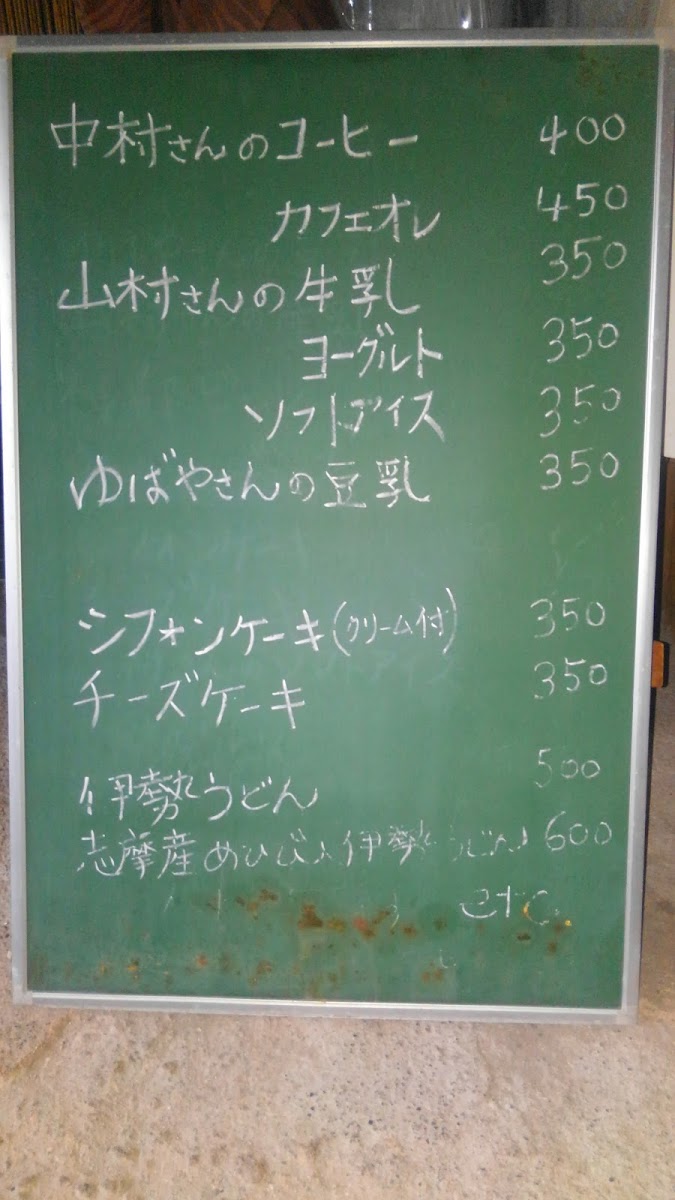 中村さんのコーヒー 400
カフェオレ 450
山村さんの牛乳 350
ヨーグルト 350
ソフトアイス 350
ゆばやさんの豆乳 350
シフォンケーキ(クリーム付) 350
チーズケーキ 350
伊勢うどん 500
志摩産めひび入伊勢うどん 600
etc